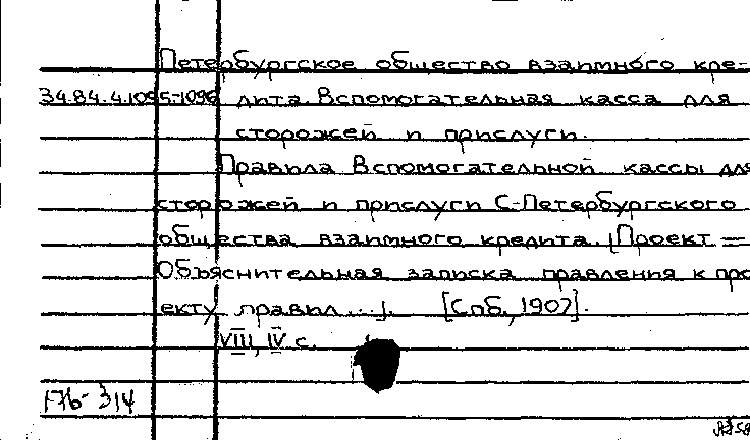 Петербургское общество взаимного кре-
34.84.4.1095-1096 дита. Вспомогательная касса для
сторожей и прислуги.
Правила Вспомогательной кассы для
сторожей и прислуги С-Петербургского
общества взаимного кредита. [Проект —
Объяснительная записка правления к про
екту правил...]. [Спб., 1907].
VIII, IV с.